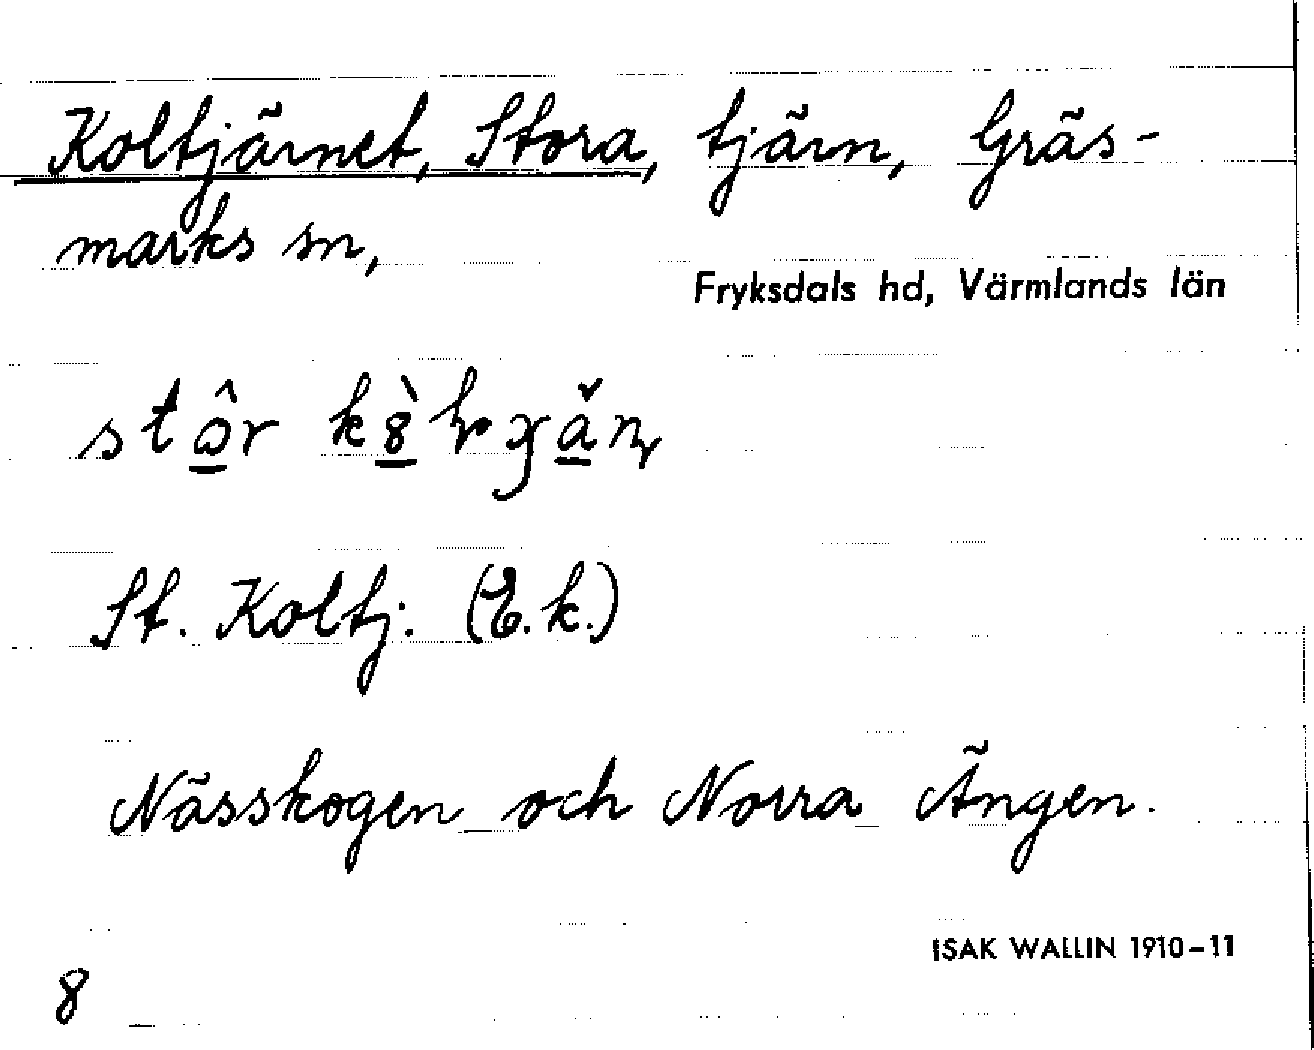 Koltjärnet, Stora, tjärn, Gräs-
marks sn,
Fryksdals hd, Värmlands län
St. Koltj. (E.k.)
Nässkogen och Norra Ängen.
ISAK WALLIN 1910–11
8